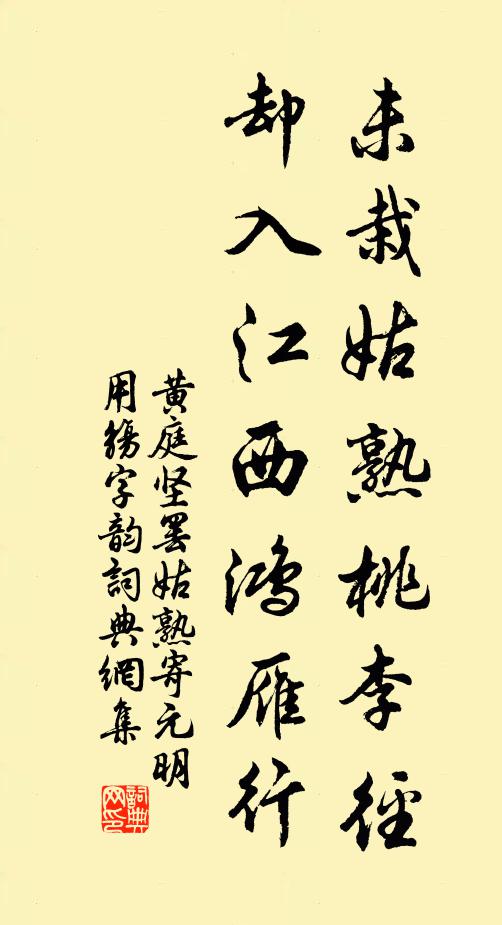 未栽姑熟桃李径
却入江西鸿雁行
黄庭坚罢姑熟寄元明
用觞字韵詞典網集
詞典网印